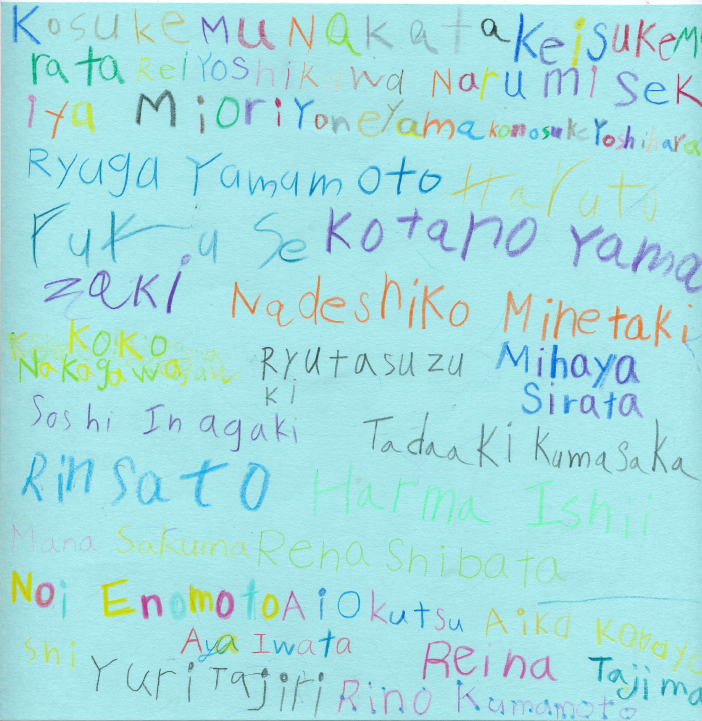 Kosuke Mu Nakata Keisuke Mu
rata Rei Yoshikawa Narumi Sek
iya Miori Yoneyama Konosuke Yoshihara
Ryuga Yamamoto Haruto
Fuku Se Kotaro Yama
zaki
Nadeshiko Minetaki
Koko
Nakagawa
Ryutasuzu
ki
Mihaya
Sirata
Soshi Inagaki
Tadaaki Kumasaka
Rin Sato Harma Ishii
Mana Sakuma Rena Shibata
Noi Enomoto Ai Okutsu Aika Kobaya
shi Aya Iwata Reina Tajima
Yuri Tajiri Rino Kumamoto